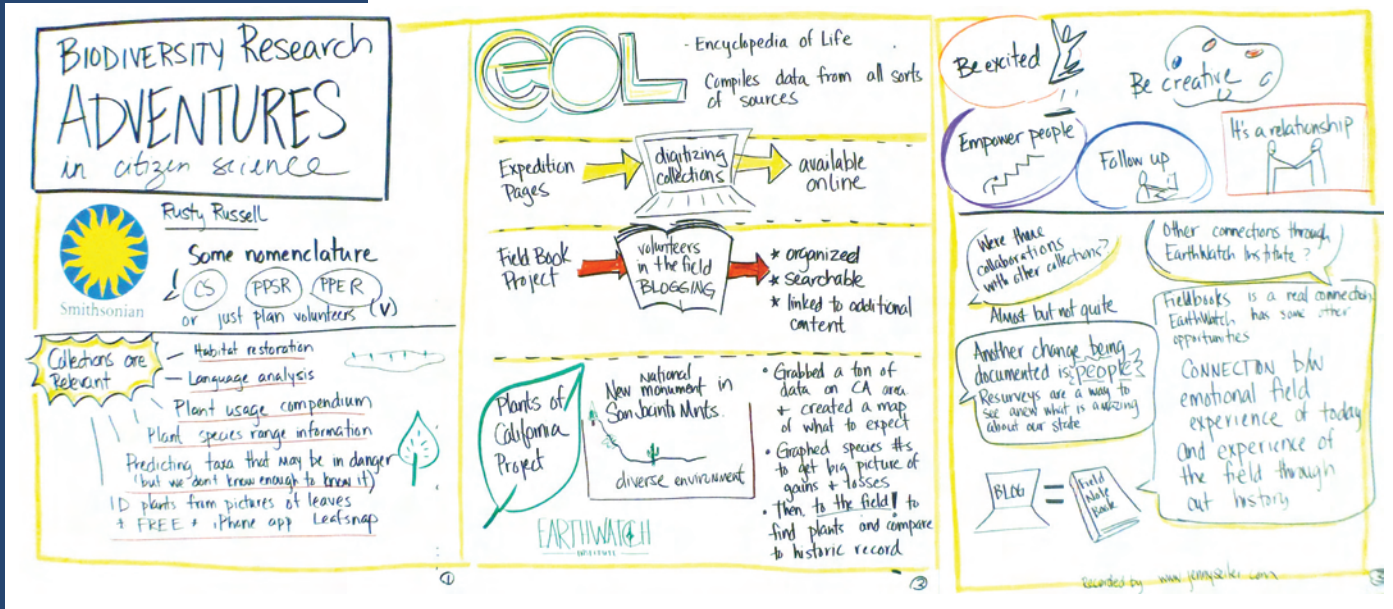 BIODIVERSITY Research
ADVENTURES
in citizen science
Rusty Russell
Smithsonian
Some nomenclature
!
CS PPSR PPER
or just plan volunteers (V)
Collections are
Relevant
Habitat restoration
Language analysis
Plant usage compendium
Plant species range information
Predicting taxa that may be in danger
(but we don't know enough to know it)
ID plants from pictures of leaves
+ FREE + iPhone app Leafsnap
①
eOL
- Encyclopedia of Life
Compiles data from all sorts
of sources
Expedition
Pages
digitizing
collections
available
online
Field Book
Project
volunteers
in the field
BLOGGING
* organized
* searchable
* linked to additional
content
Plants of
California
Project
National
New monument in
San Jacinto Mnts.
diverse environment
EARTHWATCH
INSTITUTE
• Grabbed a ton of
data on CA area
+ created a map
of what to expect
• Graphed species #s
to get big picture of
gains + losses
• then to the field! to
find plants and compare
to historic record
③
Be excited
Be creative
Empower people
Follow up
It's a relationship
Were there
collaborations
with other collections?
Almost but not quite
Other connections through
EarthWatch Institute?
Fieldbooks is a real connection
EarthWatch has some other
opportunities
Another change being
documented is people
Resurveys are a way to
see anew what is amazing
about our state
CONNECTION b/w
emotional field
experience of today
and experience of
the field through
out history
BLOG
=
Field
Note
Book
Recorded by www.jennyseiler.com